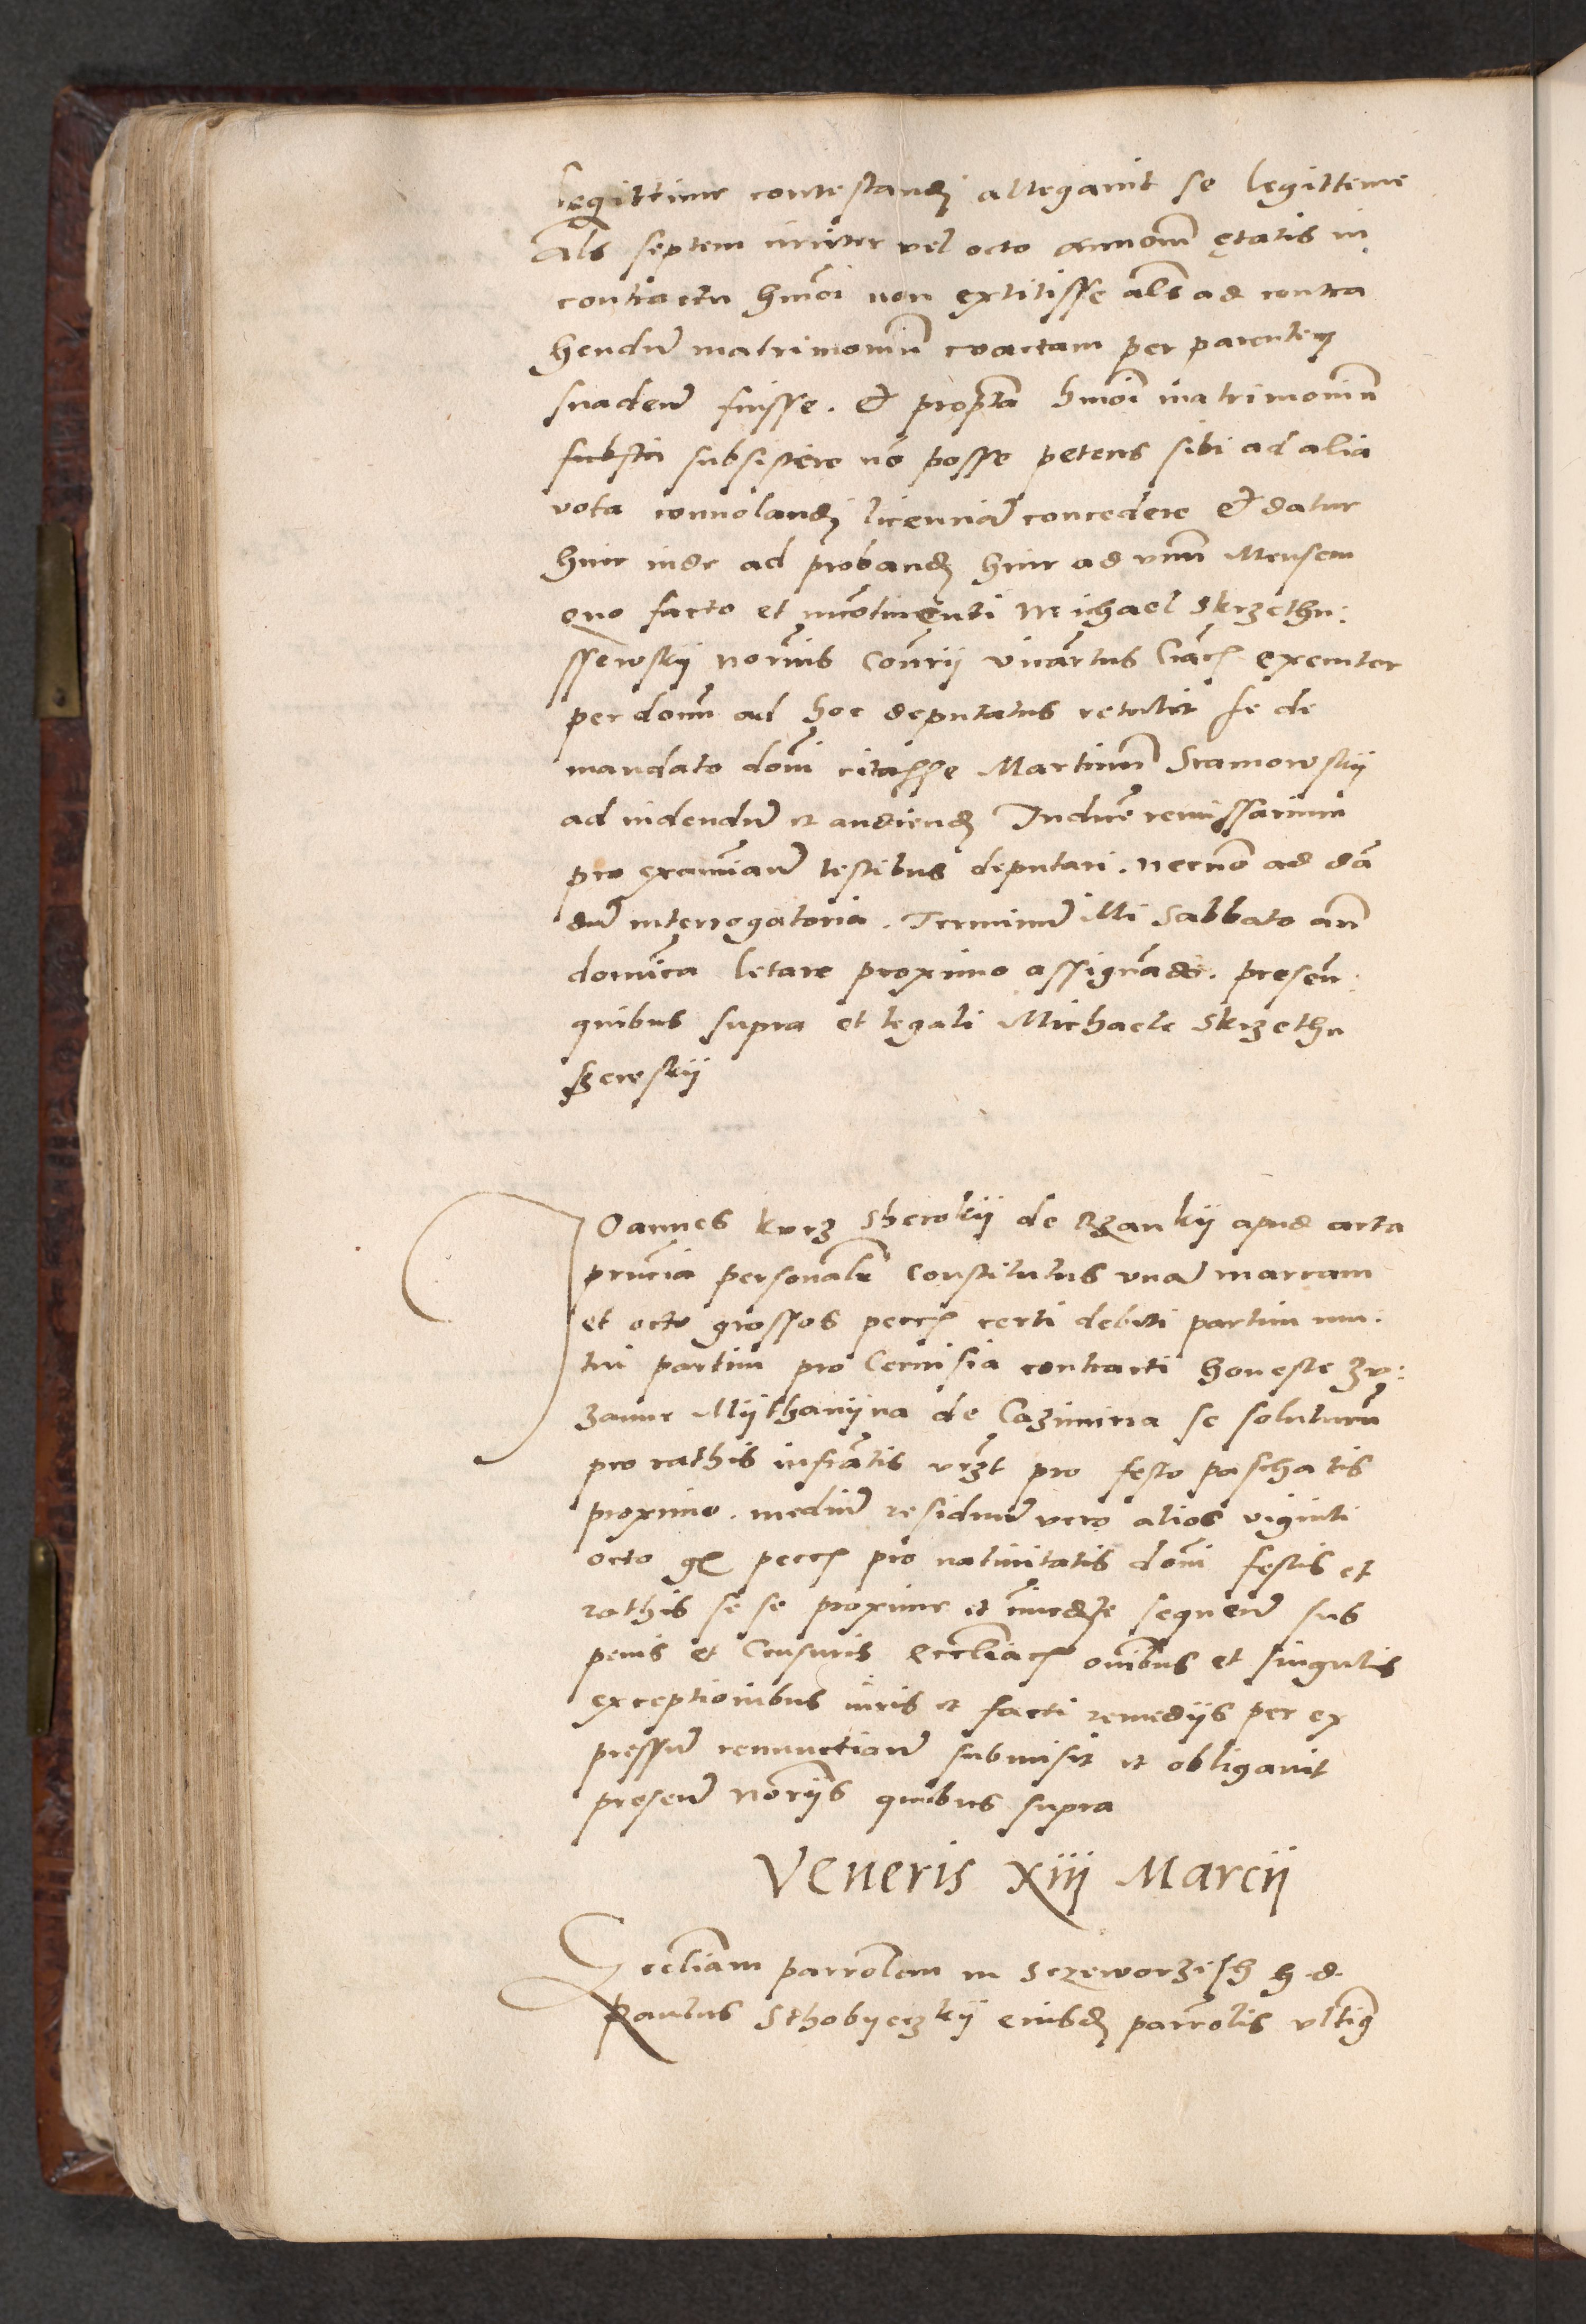 legittime contestandj allegavit se legittime
Als septem iniuter vel octo annorum ętatis in
contractu hmoi non extitisse als ad contra
hendu matrimoniu coactam per parentem
suadenł fuisse. et propta hmoi matrimoniu
substa subsistere no posse petens sibi ad alia
vota convolandj licencia concedere et datur
hinc inde ad probandj hinc ad vnu Mensem
quo facto et incotinenti Michael Skrzethu:
ssewskij norius Conrij vicartus Gnać executor
per donu ad hoc deputatus retulit se de
mandato doni citasse Martinum Sramowskij
ad videndu et audiendj Iudice remissarium
pro examianł testibus deputari. necno ad da
du interrogatoria. Terminu illi Sabbato an
domica letare proximo assignado. presen:
quibus supra et legali Michaele Skrzethu
szewskij
Ioannes korz Sherokij de Rzankij apud acta
prncia personalr Constitutus vna marcam
et octo grossos pecć certi debiti partim mu:
tui partim pro Ceruisia contracti honeste Zu:
zanne Mijthanijna de Cazimiria se soluturu
pro rathis infratis vczt pro festo paschatis
proximo. mediu residuu vero alios viginti
octo gr pecć pro natiuitatis doni festis et
rathis se se proxime et imediate sequenł sus
penis et Censuris eccliać onibus et singulis
exceptionibus iuris et facti remedijs per ex
pressu renunctianł submisit et obligauit
presenł norijs quibus supra
Veneris xiij Marcij
Eccliam parrolem in Sczeworzisch h. d.
Paulus Sthobyeczkij eiusdj parrolis vltig